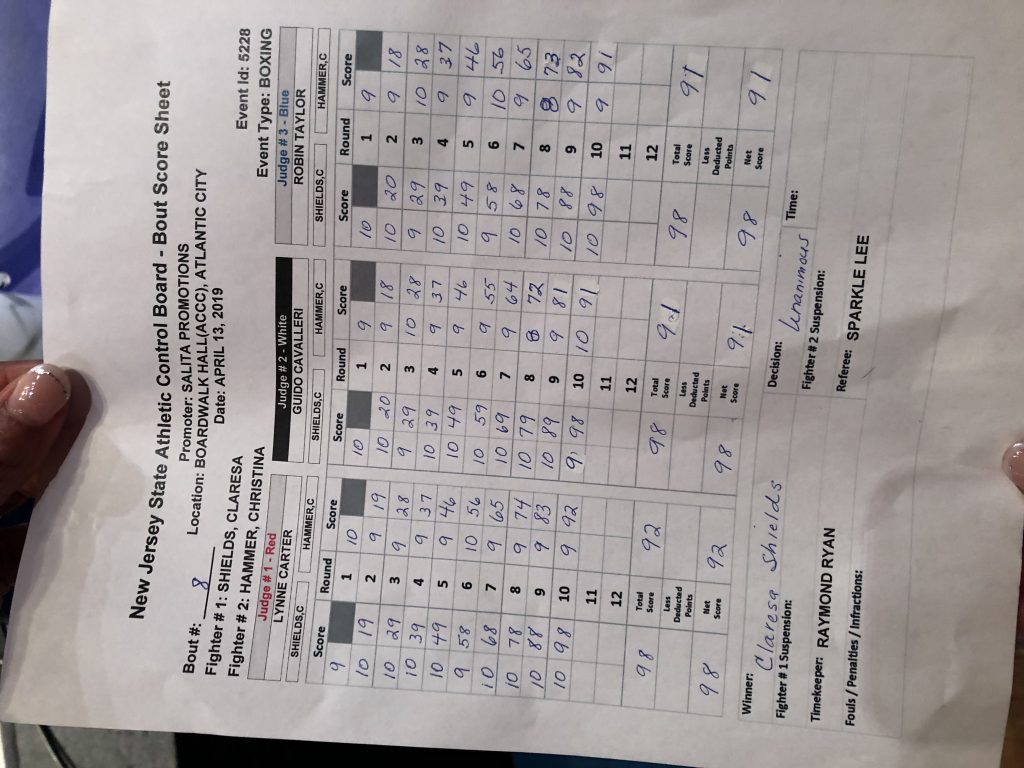 New Jersey State Athletic Control Board - Bout Score Sheet
Bout #: 8 Promoter: SALITA PROMOTIONS Event Id: 5228
Location: BOARDWALK HALL(ACCC), ATLANTIC CITY Event Type: BOXING
Fighter # 1: SHIELDS, CLARESA Date: APRIL 13, 2019
Fighter # 2: HAMMER, CHRISTINA
Judge # 1 - Red Judge # 2 - White Judge # 3 - Blue
LYNNE CARTER GUIDO CAVALLERI ROBIN TAYLOR
SHIELDS,C HAMMER,C SHIELDS,C HAMMER,C SHIELDS,C HAMMER,C
Score Round Score Score Round Score Score Round Score
9 1 10 10 1 9 10 1 9
10 19 2 9 19 10 20 2 9 18 10 20 2 9 18
10 29 3 9 28 9 29 3 10 28 9 29 3 10 28
10 39 4 9 37 10 39 4 9 37 10 39 4 9 37
10 49 5 9 46 10 49 5 9 46 10 49 5 9 46
9 58 6 10 56 10 59 6 9 55 9 58 6 10 56
10 68 7 9 65 10 69 7 9 64 10 68 7 9 65
10 78 8 9 74 10 79 8 8 72 10 78 8 8 73
10 88 9 9 83 10 89 9 9 81 10 88 9 9 82
10 98 10 9 92 9 98 10 10 91 10 98 10 9 91
11 11 11
12 12 12
98 Total Score 92 98 Total Score 91 98 Total Score 91
Less Deducted Points Less Deducted Points Less Deducted Points
98 Net Score 92 98 Net Score 91 98 Net Score 91
Winner: Claresa Shields Decision: Unanimous Time:
Fighter # 1 Suspension: Fighter # 2 Suspension:
Timekeeper: RAYMOND RYAN Referee: SPARKLE LEE
Fouls / Penalties / Infractions: